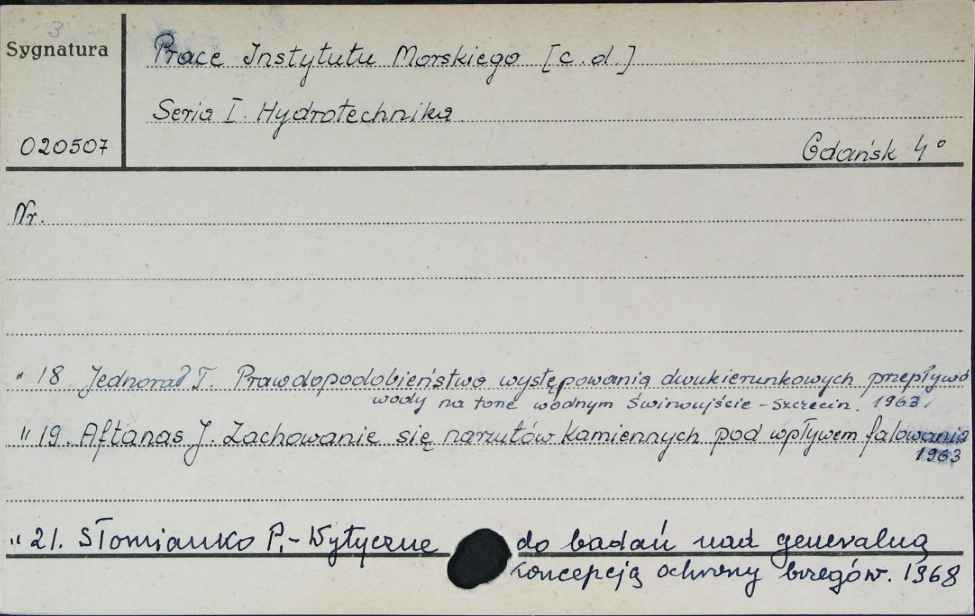 3
Sygnatura
Prace Instytutu Morskiego [c.d.]
Seria I. Hydrotechnika
020507
Gdańsk 4°
Nr.
" 18 Jednorał T. Prawdopodobieństwo występowania dwukierunkowych przepływów
wody na torze wodnym Świnoujście - Szczecin. 1963.
" 19. Aftanas J. Zachowanie się narzutów kamiennych pod wpływem falowania
1963
" 21. Słomianko P. - Wytyczne do badań nad generalną
koncepcją ochrony brzegów. 1968